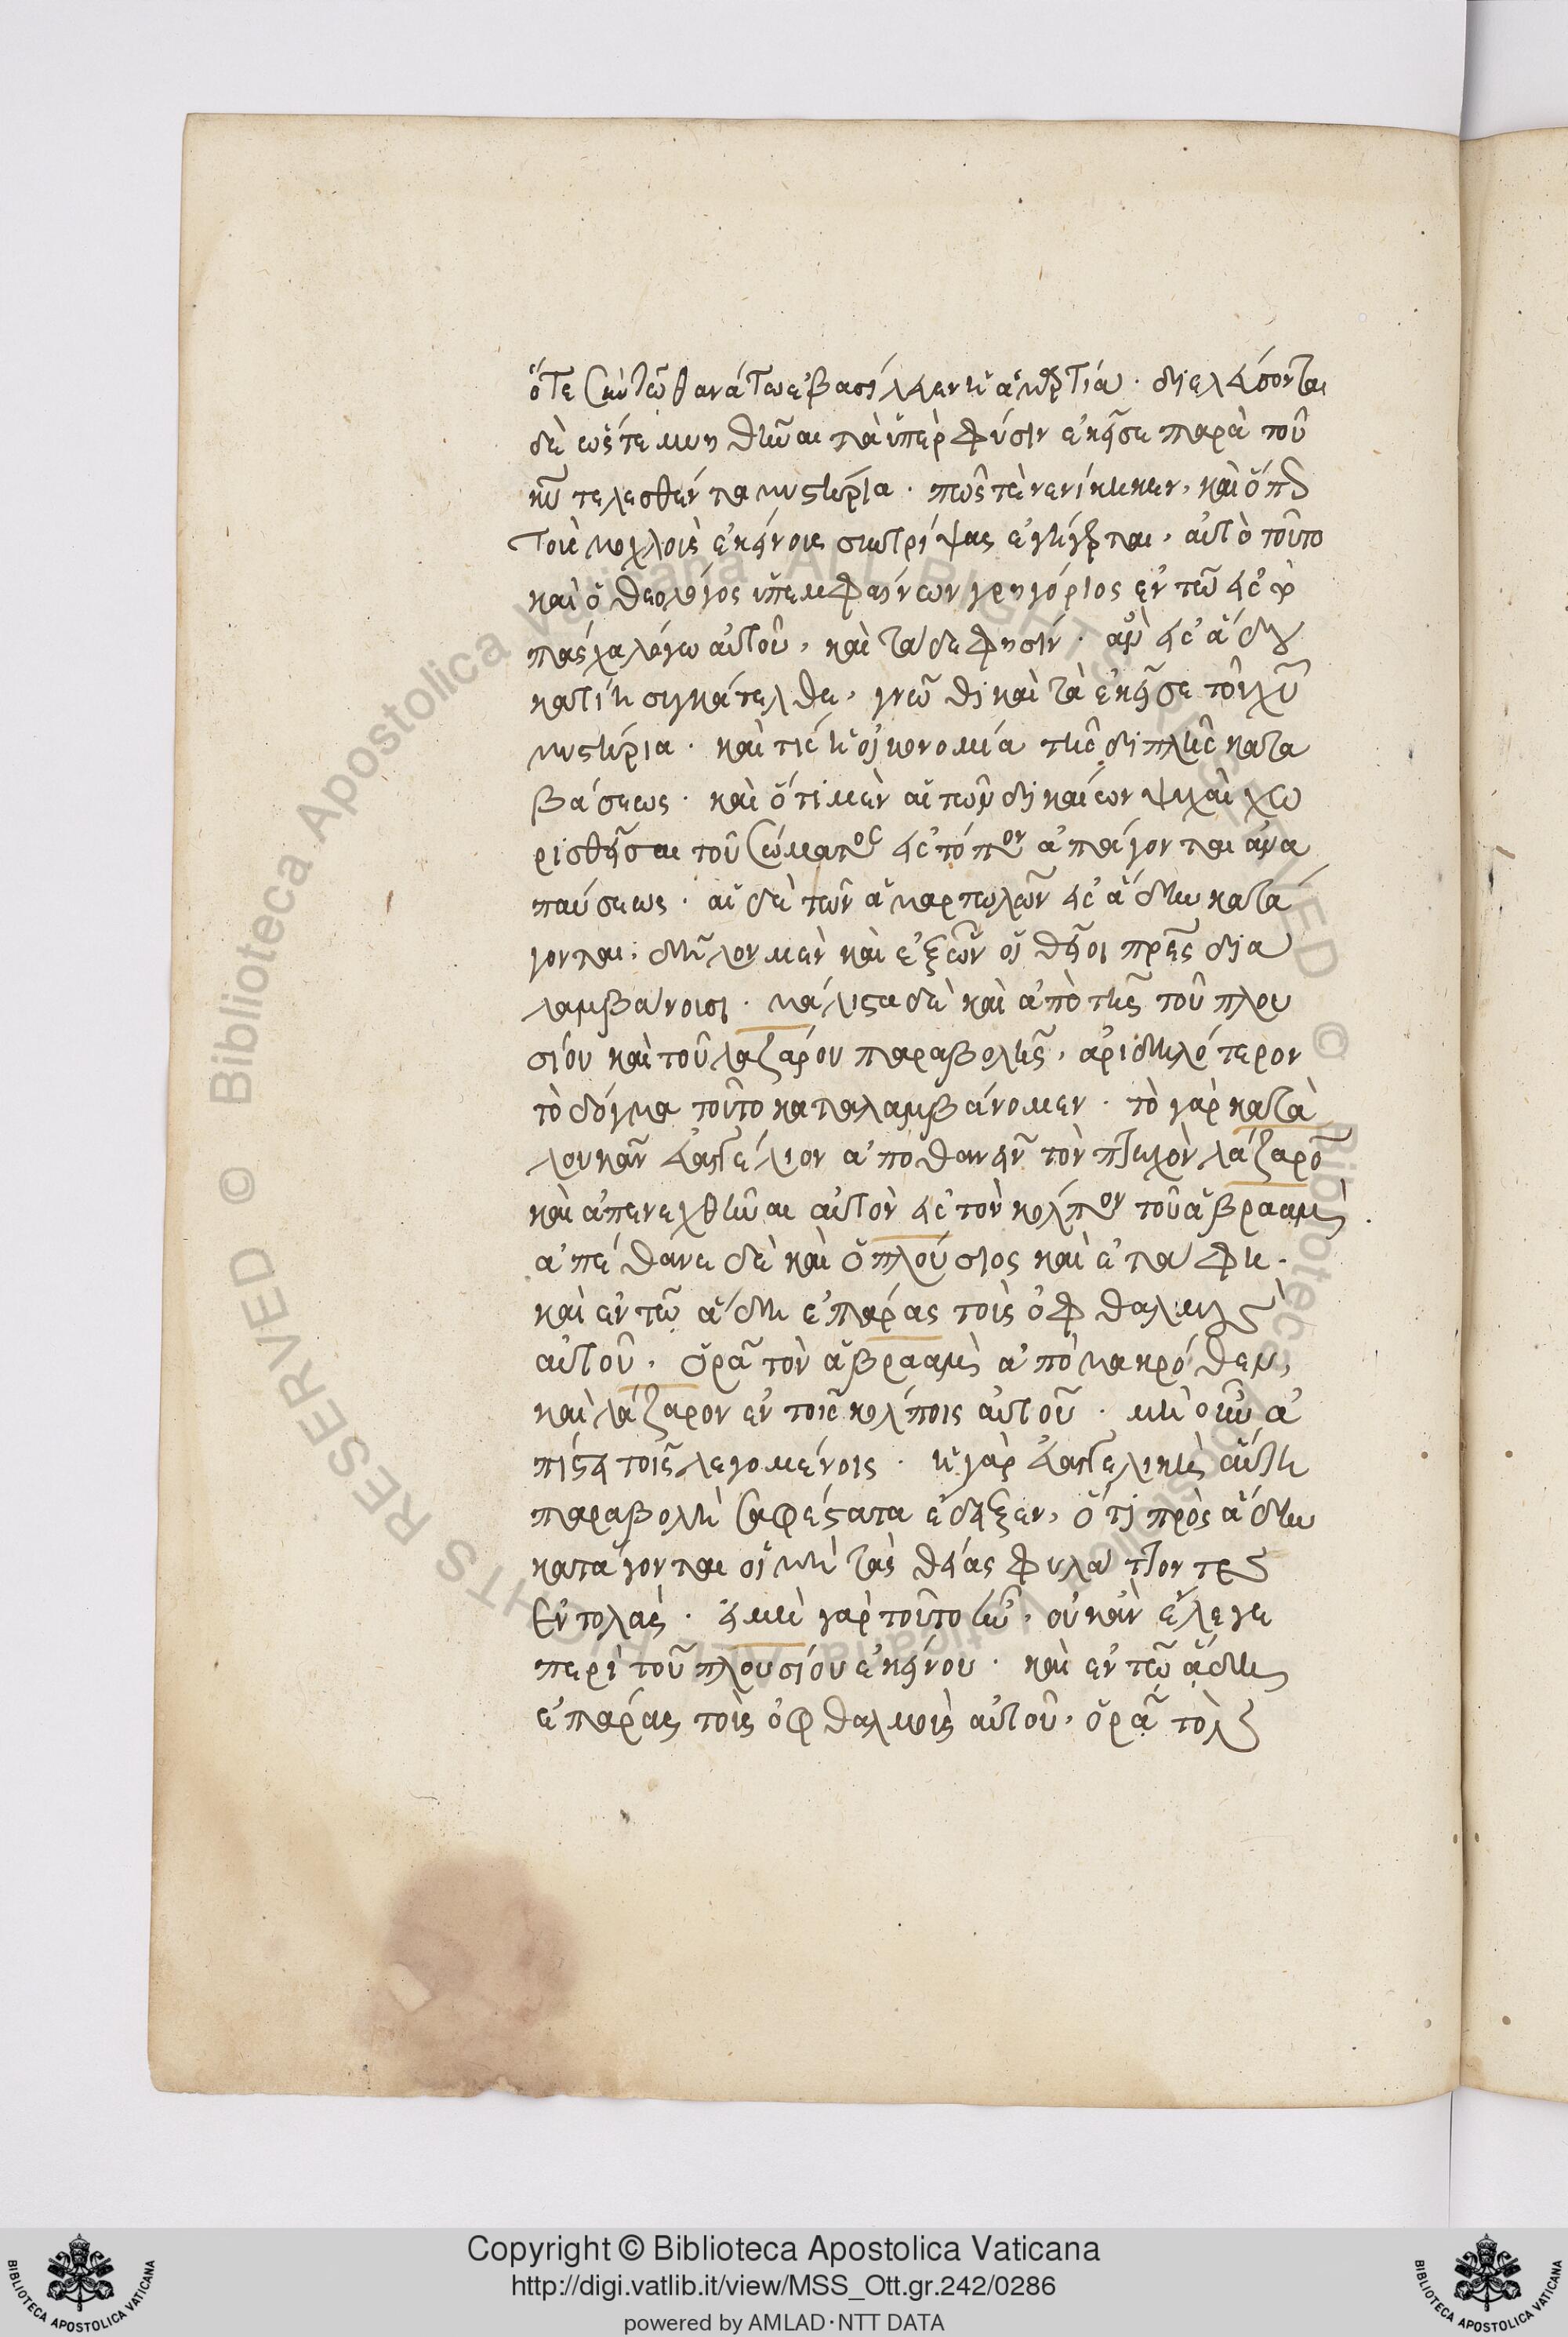 ὅτε σὺν τῶ θανάτω ἐβασίλευεν ἡ ἁμαρτία. διελεύσονται
δὲ ὥστε μυηθῆναι τὰ ὑπὲρ φύσιν ἐκεῖσε παρὰ τοῦ
κυ τελεσθέντα μυστήρια. πῶς τὲ νενίκηκεν, καὶ ὅπως
τοὺς μοχλοὺς ἐκείνους συντρίψας ἐγήγερται, αὐτὸ τοῦτο
καὶ ὁ θεολόγος ὑπεμφαίνων γρηγόριος ἐν τῶ εἰς τὸ
πάσχα λόγω αὐτοῦ, καὶ τάδε φησίν. ἂν εἰς ἅδου
κατίη συγκάτελθε, γνῶθι καὶ τὰ ἐκεῖσε τοῦ χυ
μυστήρια. καὶ τίς ἡ οἰκονομία τῆς διπλῆς κατα
βάσεως. καὶ ὅτι μὲν αἱ τῶν δικαίων ψυχαὶ χω
ρισθεῖσαι τοῦ σώματος εἰς τόπον ἀπάγονται ἀνα
παύσεως. αἱ δὲ τῶν ἁμαρτωλῶν εἰς ἅδην κατά
γονται, δῆλον μὲν καὶ ἐξ ὧν οἱ θεῖοι πρες δια
λαμβάνουσι. μάλιστα δὲ καὶ ἀπὸ τῆς τοῦ πλου
σίου καὶ τοῦ λαζάρου παραβολῆς, ἀριδηλότερον
τὸ δόγμα τοῦτο καταλαμβάνομεν. τὸ γὰρ κατὰ
λουκᾶν εὐαγγέλιον ἀποθανεῖν τὸν πτωχὸν λάζαρον
καὶ ἀπενεχθῆναι αὐτὸν εἰς τὸν κόλπον τοῦ ἀβραὰμ.
ἀπέθανε δὲ καὶ ὁ πλούσιος καὶ ἐτάφη.
καὶ ἐν τῶ ἅδη ἐπάρας τοὺς ὀφθαλμοὺς
αὐτοῦ, ὁρᾶ τὸν ἀβραὰμ ἀπὸ μακρόθεν,
καὶ λάζαρον ἐν τοῖς κόλποις αὐτοῦ. μὴ οὖν ἀ
πίστει τοῖς λεγομένοις. ἡ γὰρ εὐαγγελικὴ αὕτη
παραβολὴ σαφέστατα ἔδειξεν, ὅτι πρὸς ἅδην
κατάγονται οἱ μὴ τὰς θείας φυλάττοντες
ἐντολὰς. εἰ μὴ γὰρ τοῦτο ἦν, οὐκ ἂν ἔλεγε
περὶ τοῦ πλουσίου ἐκείνου. καὶ ἐν τῶ ἅδη
ἐπάρας τοὺς ὀφθαλμοὺς αὐτοῦ, ὁρᾶ τὸν
Copyright © Biblioteca Apostolica Vaticana
http://digi.vatlib.it/view/MSS_Ott.gr.242/0286
powered by AMLAD·NTT DATA